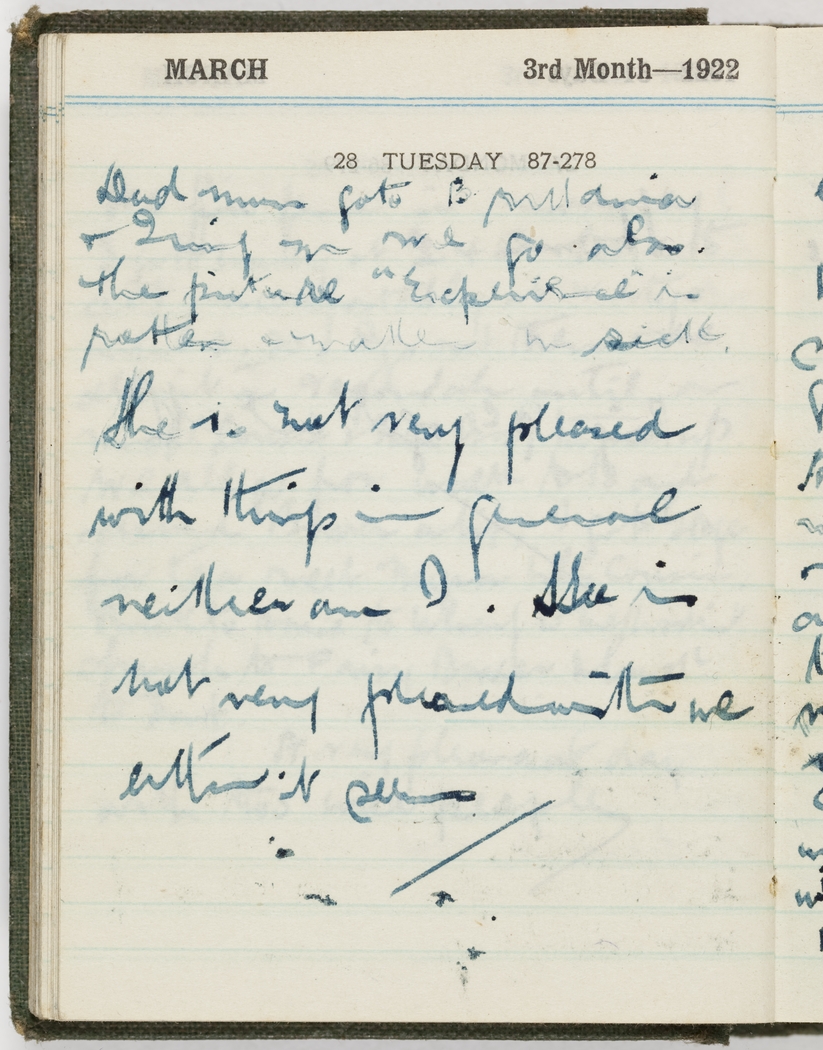 MARCH 3rd Month—1922
28 TUESDAY 87-278
Dad mum go to B
+ we go also.
the picture "Experience" is
rotten + me sick.
She is not very pleased
with things in general
neither am I. She is
not very pleased with me
either it seems